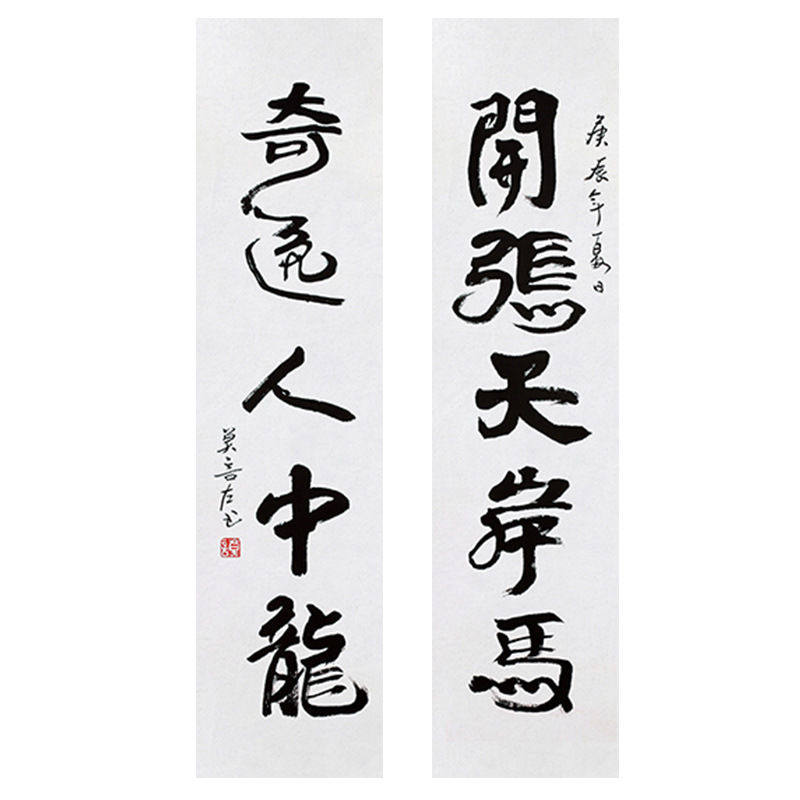 庚辰年夏日
開張天岸馬
奇逸人中龍
莫言左书